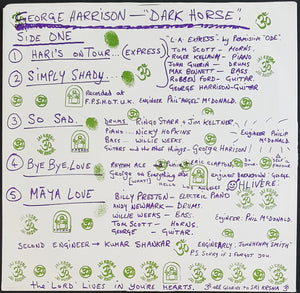 GEORGE HARRISON — "DARK HORSE"
SIDE ONE
① HARI'S ON TOUR... (EXPRESS)
"L.A EXPRESS" - by Permission "ODE"
TOM SCOTT — HORNS.
ROGER KELLAWAY — PIANO
JOHN GUERIN — DRUMS
MAX BENNETT — BASS
ROBBEN FORD - GUITAR
GEORGE HARRISON - GUITAR
② SIMPLY SHADY...
Recorded at
F.P.S.H.O.T. U.K. ENGINEER PHIL "ANGEL" McDONALD.
③ SO SAD
DRUMS RINGO STARR + JIM KELTNER.
PIANO NICKY HOPKINS
BASS WILLIE WEEKS
George Harrison
ENGINEER PHILIP McDONALD.
④ BYE BYE, LOVE
RHYTHM ACE
ERIC CLAPTON
George on Everything else
(WHAT)
HELLO
ENGINEER GEORGE
OHLIVERE.
⑤ MĀYA LOVE
BILLY PRESTON — ELECTRIC PIANO
ANDY NEWMARK — DRUMS
WILLIE WEEKS — BASS.
TOM SCOTT — HORNS.
GEORGE — GUITAR.
ENGINEER. PHIL McDONALD
SECOND ENGINEER → KUMAR SHANKAR
P.S. Sorry I forgot you
the LORD LIVES IN YOURE HEARTS.
all Glories to SRI KRSNA